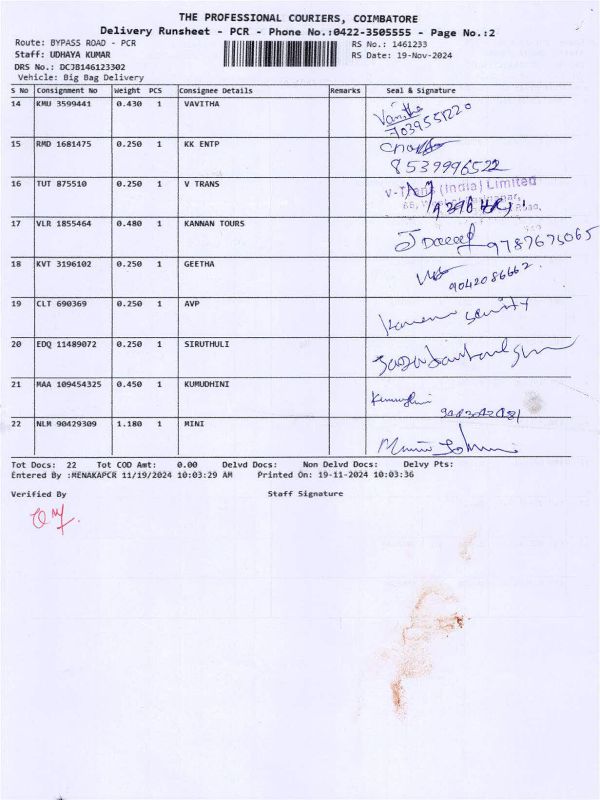 THE PROFESSIONAL COURIERS, COIMBATORE
Delivery Runsheet - PCR - Phone No.:0422-3505555 - Page No.:2
Route: BYPASS ROAD - PCR RS No.: 1461233
Staff: UDHAYA KUMAR RS Date: 19-Nov-2024
DRS No.: DCJB146123302
Vehicle: Big Bag Delivery
S No Consignment No Weight PCS Consignee Details Remarks Seal & Signature
14 KMU 3599441 0.430 1 VAVITHA Vanitha
7039551220
15 RMD 1681475 0.250 1 KK ENTP
8539996522
16 TUT 875510 0.250 1 V TRANS V-Trans (India) Limited
17 VLR 1855464 0.480 1 KANNAN TOURS
9787675065
18 KVT 3196102 0.250 1 GEETHA
9042086662
19 CLT 690369 0.250 1 AVP
20 EDQ 11489072 0.250 1 SIRUTHULI
21 MAA 109454325 0.450 1 KUMUDHINI
22 NLM 90429309 1.180 1 MINI
Tot Docs: 22 Tot COD Amt: 0.00 Delvd Docs: Non Delvd Docs: Delvy Pts:
Entered By :MENAKAPCR 11/19/2024 10:03:29 AM Printed On: 19-11-2024 10:03:36
Verified By Staff Signature